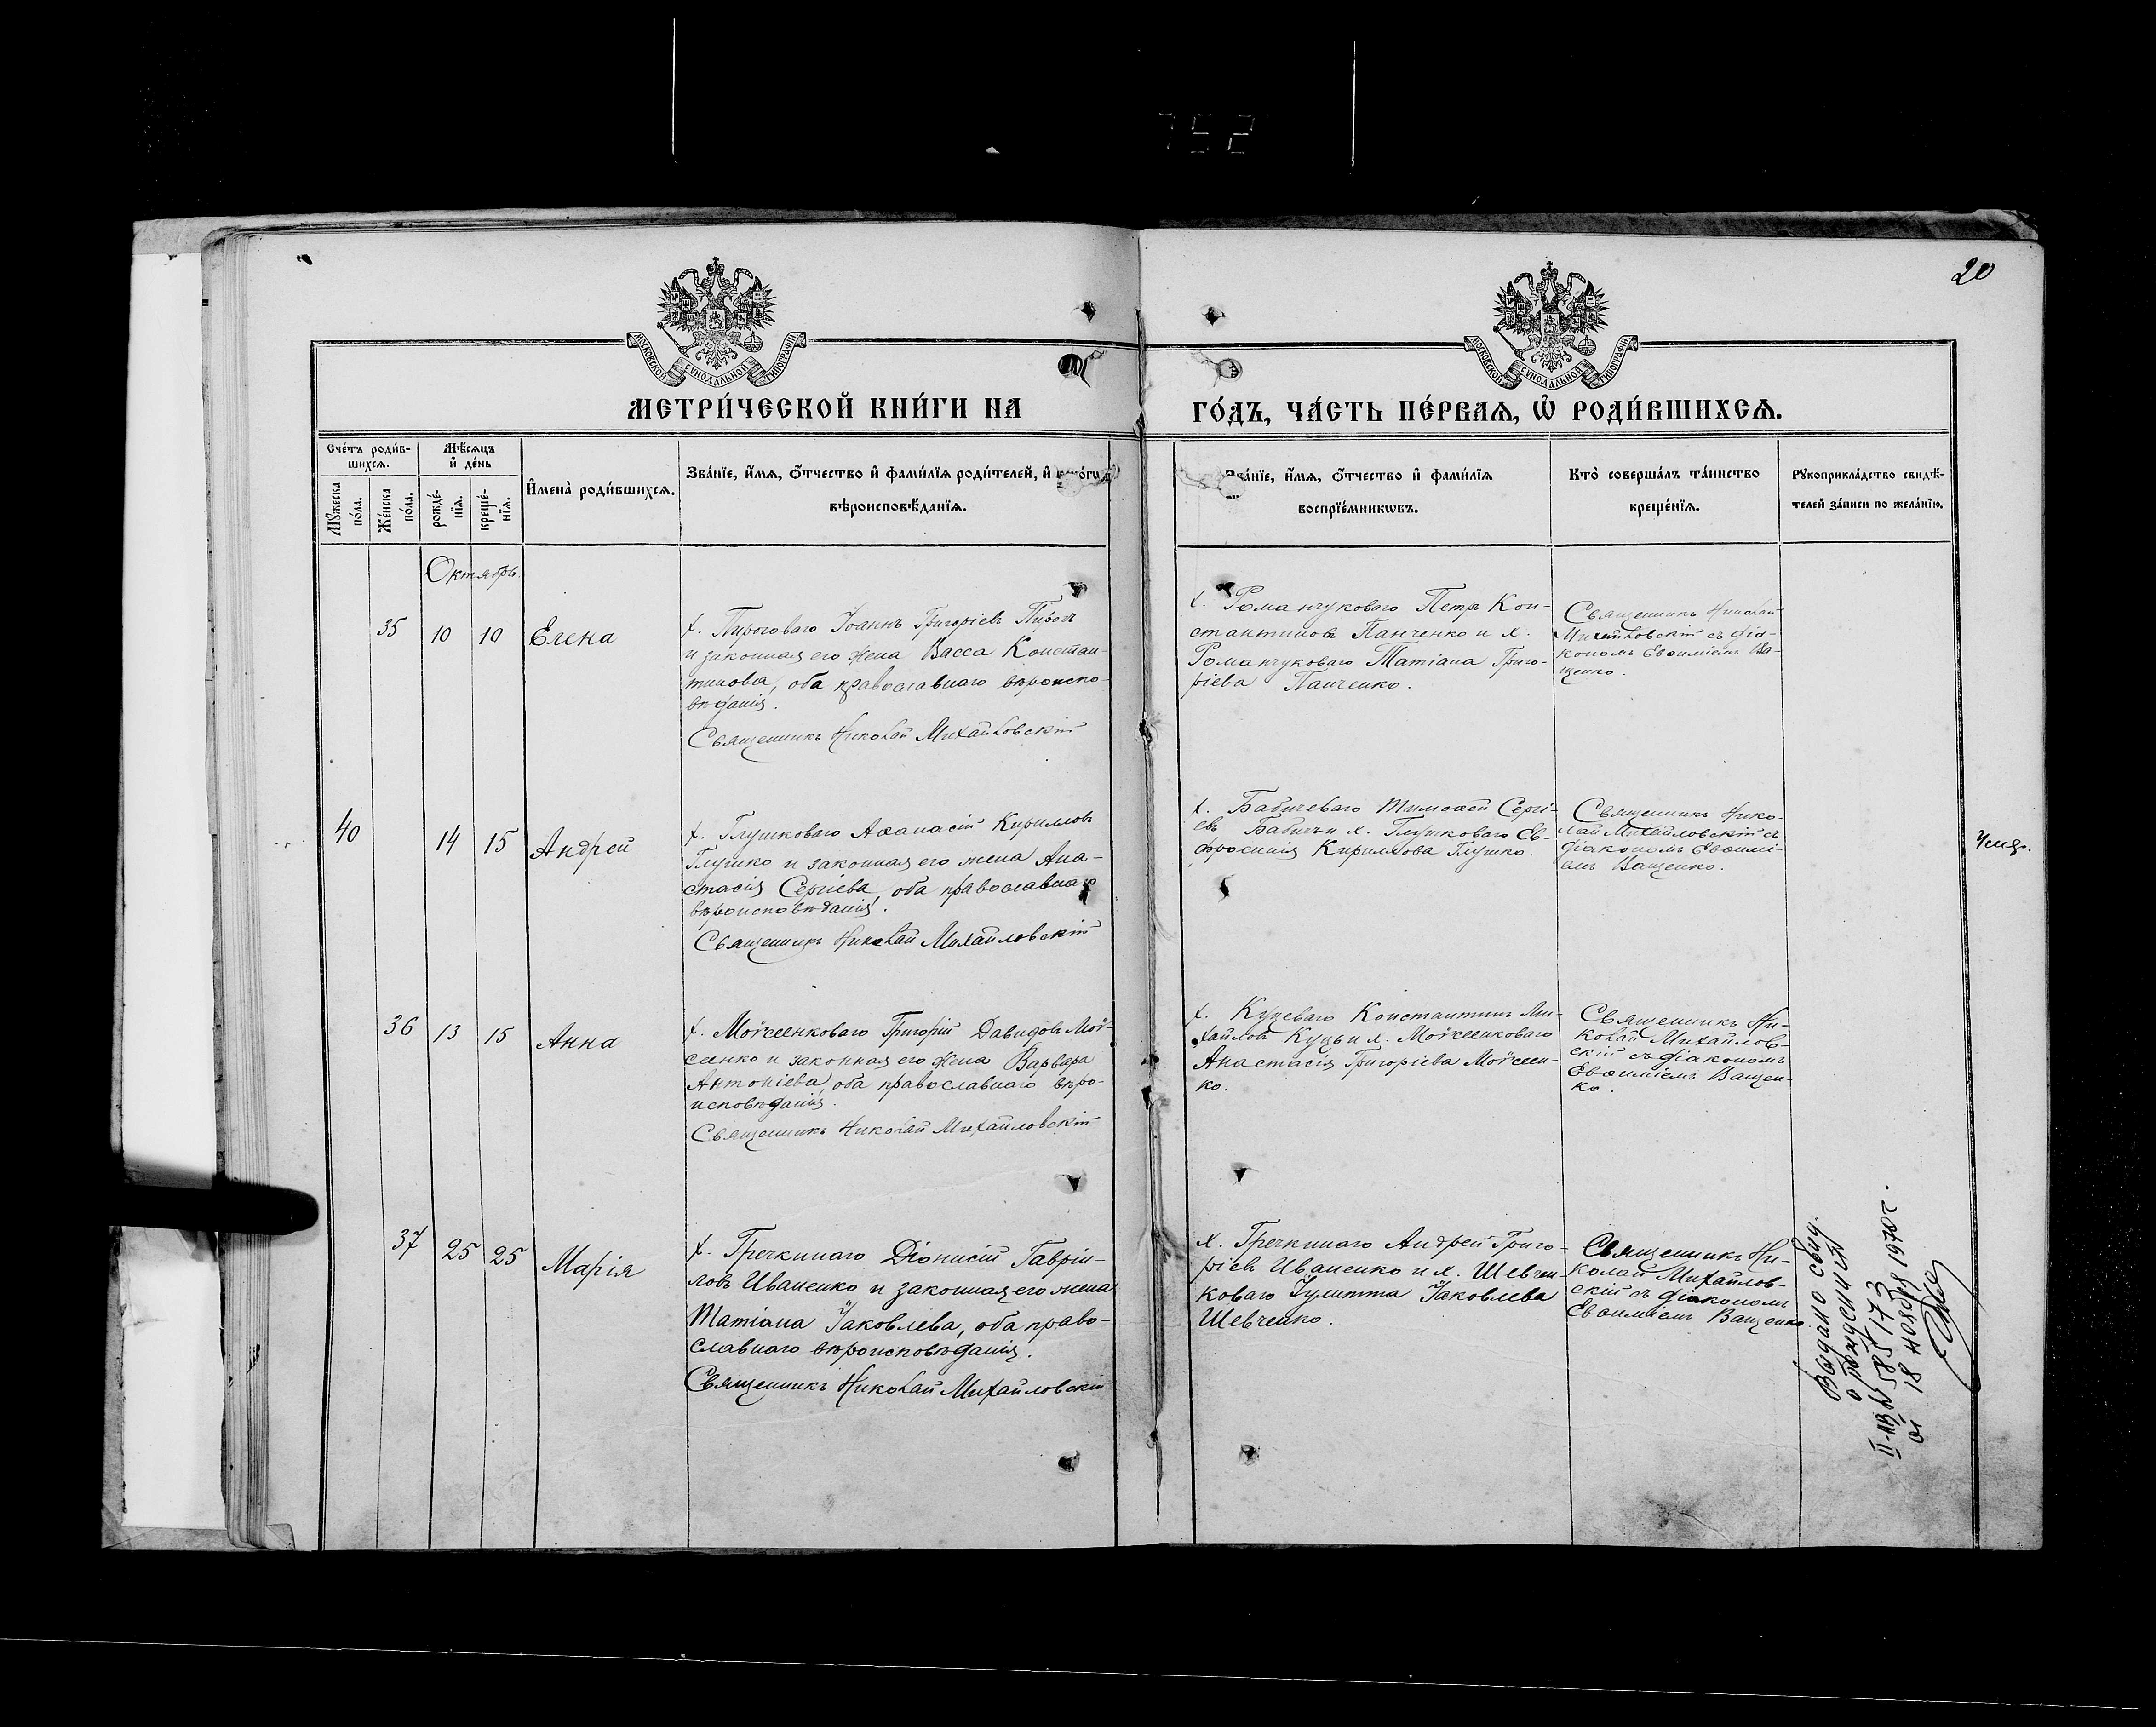 752
20
МОСКОВСКОЙ СѴНОДАЛЬНОЙ ТИПОГРАФІИ
МОСКОВСКОЙ СѴНОДАЛЬНОЙ ТИПОГРАФІИ
МЕТРИ́ЧЕСКОЙ КНИ́ГИ НА
ГО́ДЪ, ЧА́СТЬ ПЕ́РВАѦ, Ѡ҆ РОДИ́ВШИХСѦ.
Сче́тъ роди́в-
шихсѧ.
Мꙋ́жеска по́ла.
Же́нска по́ла.
Мѣ́сѧцъ
и҆ де́нь
рожде́-
нїѧ.
креще́-
нїѧ.
И҆мена̀ роди́вшихсѧ.
Зва́нїе, и҆́мѧ, ѻ҆́тчество и҆ фами́лїѧ роди́телей, и҆
вѣроисповѣ́данїѧ.
Зва́нїе, и҆́мѧ, ѻ҆́тчество и҆ фами́лїѧ
воспрїе́мникѡвъ.
Кто̀ соверша́лъ та́инство
креще́нїѧ.
Рꙋкоприкла́дство свидѣ́-
телей за́писи по жела́нїю.
Октябрь.
35
10
10
Елена
х. Пироговаго Іоаннъ Григоріевъ Пирогъ
и законная его жена Васса Констан-
тинова, оба православнаго вѣроиспо-
вѣданія.
Священникъ Николай Михайловскій
х. Романчуковаго Петръ Кон-
стантиновъ Панченко и х.
Романчуковаго Татіана Григо-
ріева Панченко.
Священникъ Николай
Михайловскій съ діа-
кономъ Евѳиміемъ Ва-
щенко.
40
14
15
Андрей
х. Глушковаго Аѳанасій Кирилловъ
Глушко и законная его жена Ана-
стасія Сергіева, оба православнаго
вѣроисповѣданія.
Священникъ Николай Михайловскій
х. Бабичеваго Тимоѳей Сергі-
евъ Бабичъ и х. Глушковаго Ев-
фросинія Кириллова Глушко.
Священникъ Нико-
лай Михайловскій съ
діакономъ Евѳимі-
емъ Ващенко.
36
13
15
Анна
х. Мойсеенковаго Григорій Давидовъ Мой-
сеенко и законная его жена Варвара
Антоніева, оба православнаго вѣро-
исповѣданія.
Священникъ Николай Михайловскій
х. Куцеваго Константинъ Ми-
хайловъ Куць и х. Мойсеенковаго
Анастасія Григоріева Мойсеен-
ко.
Священникъ Ни-
колай Михайлов-
скій съ діакономъ
Евѳиміемъ Ващен-
ко.
37
25
25
Марія
х. Гречкинаго Діонисій Гавріи-
ловъ Иваненко и законная его жена
Татіана Яковлева, оба право-
славнаго вѣроисповѣданія.
Священникъ Николай Михайловскій
х. Гречкинаго Андрей Григо-
ріевъ Иваненко и х. Шевчен-
коваго Іулитта Іаковлева
Шевченко.
Священникъ Ни-
колай Михайлов-
скій съ діакономъ
Евѳиміемъ Ващенко.
Видано свид.
о рождении
585173
от 18 ноября 1970 г.